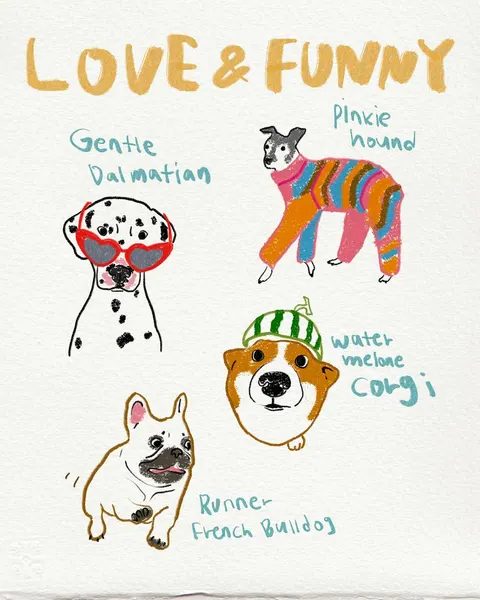 LOVE & FUNNY
Gentle
Dalmatian
Pinkie
hound
water
melone
corgi
Runner
French Bulldog